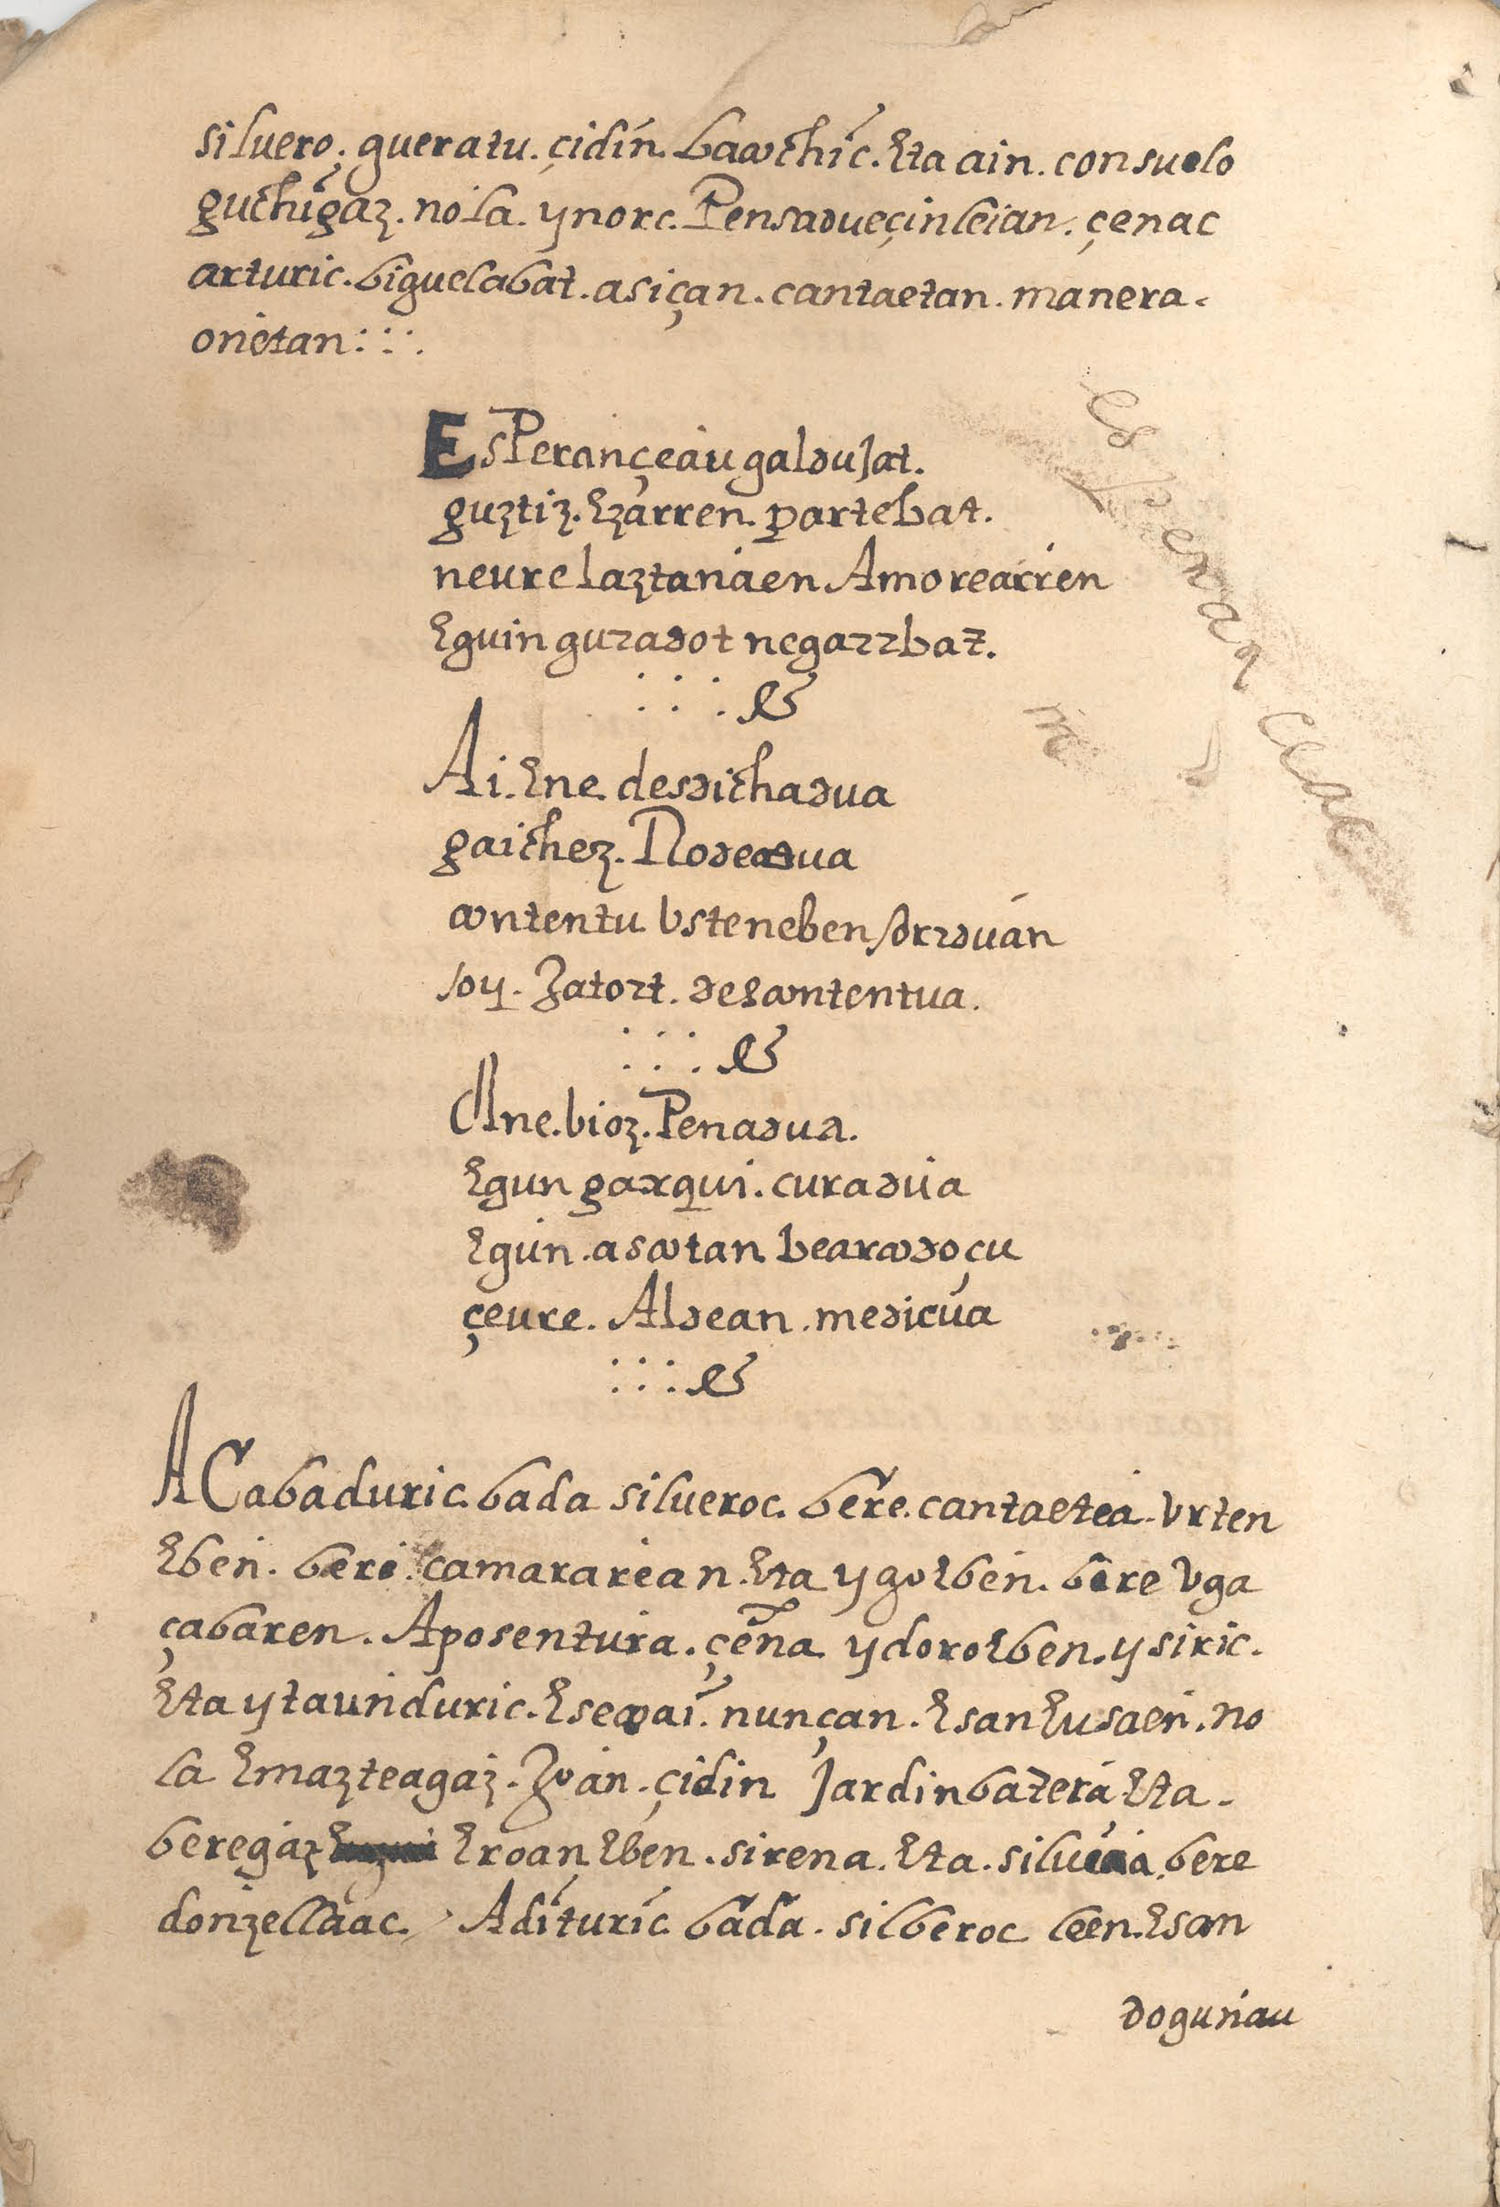 siluero. gueratu. çidin. bacochic. Eta ain. consuelo
guchigaz. nola. ynorc. Pensadueçinleian. çenac
arturic. biguelabat. asiçan. cantaetan. manera.
onetan:::
EsPerançeau galduJat.
guztiz. Ezarren. partebat.
neure laztanaen Amorearren
Eguin guradot negarrbat.
:::&
Ai. Ene. desdichadua
gaichez. Rodeadua
contentu Vsteneben sorrduan
soy. Zatort. descontentua.
:::&
Ane. bioz. Penadua.
Egun garqui. curadua
Egun. ascotan bearcodoçu
çeure. Aldean. medicua
:::&
ACabaduric. bada silueroc. bere. cantaetea. Vrten
Eben. bere. camararean. Eta ygoEben. bere Vga
çabaren. Aposentura. çena ydoroEben. ysiric.
Eta ytaunduric. Esecpai. nunçan. Esan Eusaen. no
la Emazteagaz. Joan. çidin Jardin batera Eta.
beregaz Eroan Eben. sirena. Eta. siluia. bere
donzellaac. Adituric bada. silberoc leen. Esan
dogunau
Es peran ceac